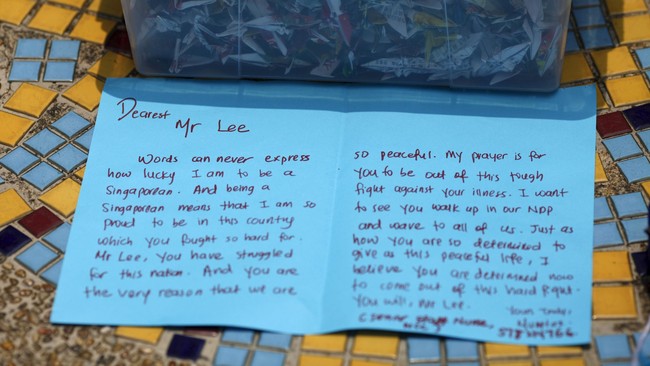 Dearest
Mr Lee
Words can never express
how lucky I am to be a
Singaporean. And being a
Singaporean means that I am so
proud to be in this country
which you fought so hard for.
Mr Lee, you have struggled
for this nation. And you are
the very reason that we are
so peaceful. My prayer is for
you to be out of this tough
fight against your illness. I want
to see you walk up in our NDP
and wave to all of us. Just as
how you are so determined to
give us this peaceful life, I
believe you are determined now
to come out of this hard fight.
You will, Mr Lee.
Yours Truly,
Nurse,